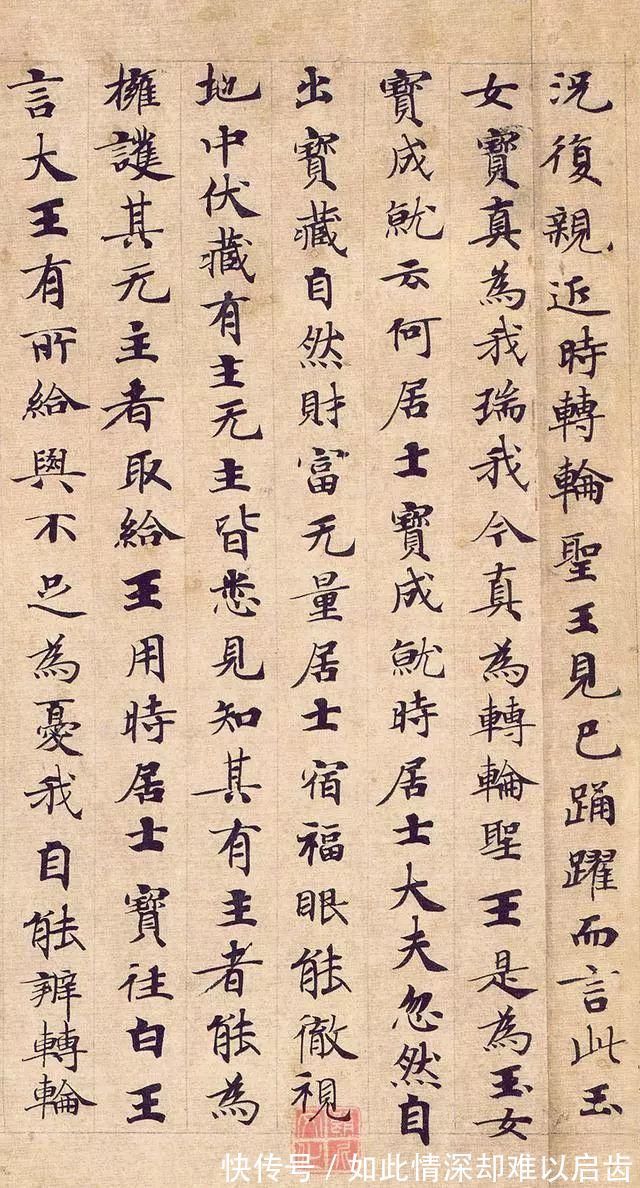 况復親近時轉輪聖王見已踊躍而言此玉
女寶真為我瑞我今真為轉輪聖王是為玉女
寶成就云何居士寶成就時居士大夫忽然自
出寶藏自然財富无量居士宿福眼能徹視
地中伏藏有主无主皆悉見知其有主者能為
擁護其无主者取給王用時居士寶往白王
言大王有所給與不足為憂我自能辦轉輪
快传号 / 如此情深却难以启齿